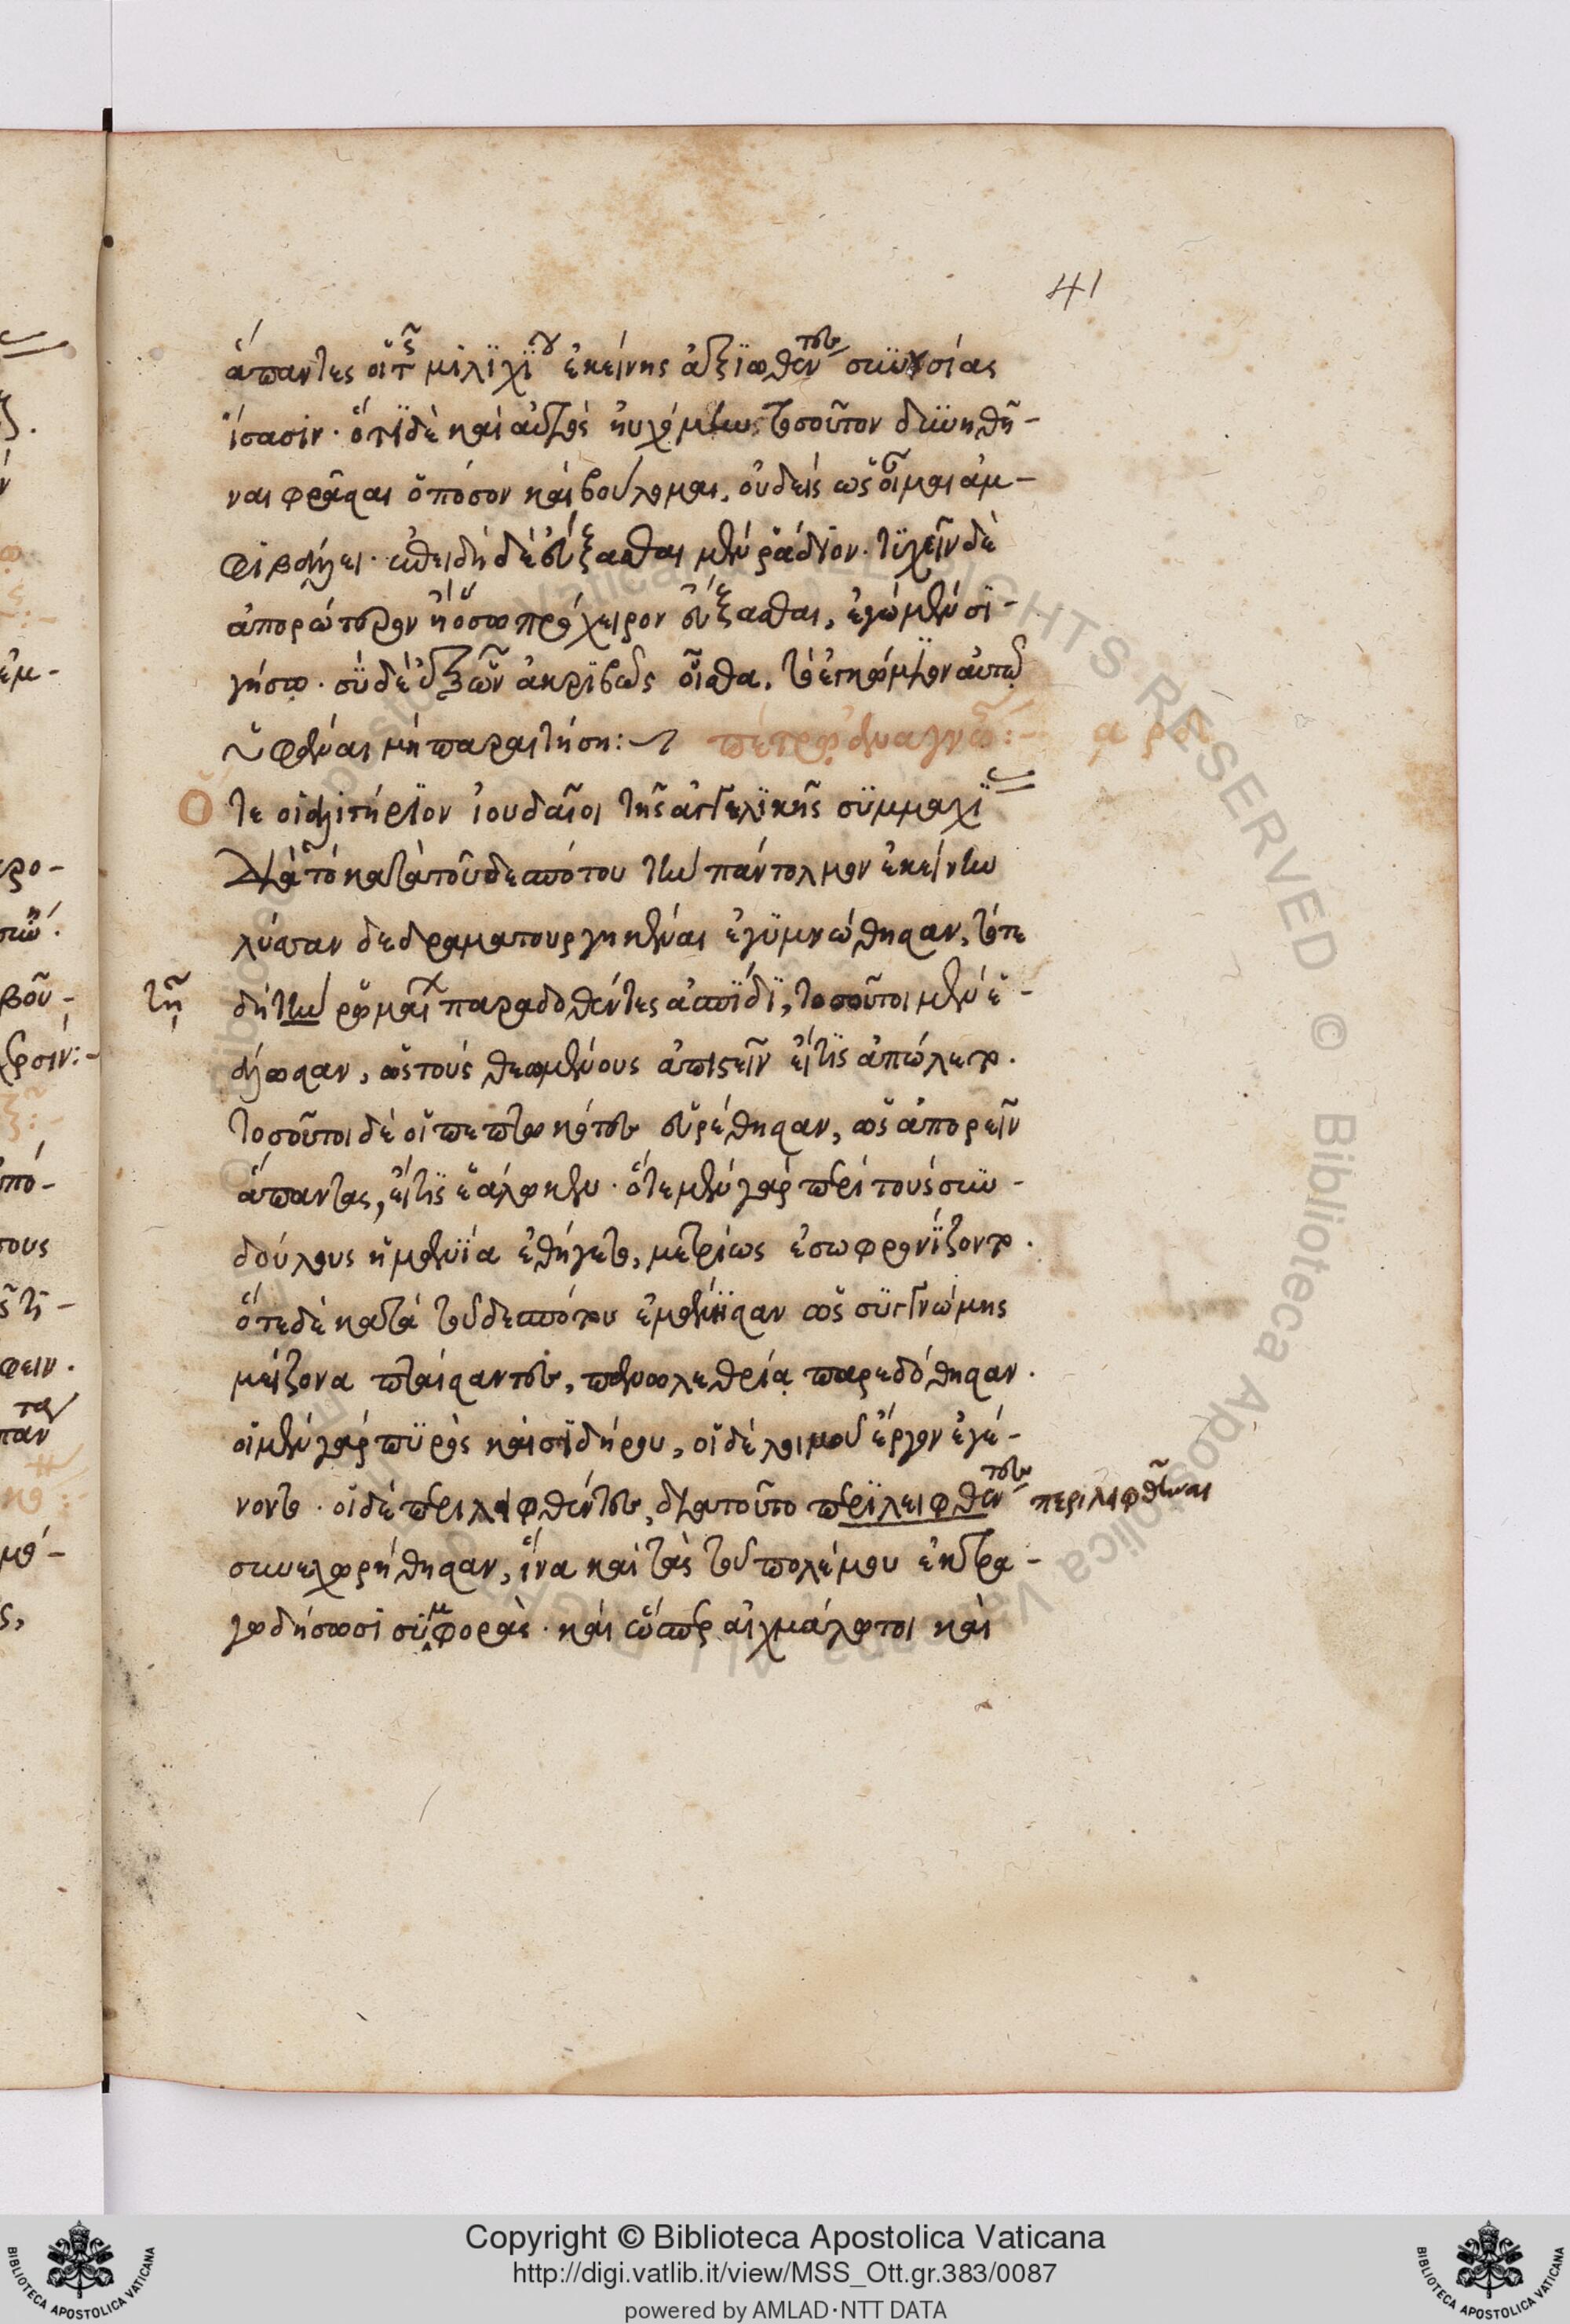 41
ἅπαντες οἱ τῆς μειλιχίου ἐκείνης ἀξιωθέντες συνουσίας
ἴσασιν. ὅτι δὲ καὶ αὐτὸς ηὐχόμην τοσοῦτον δυνηθῆ-
ναι φράσαι ὁπόσον καὶ βούλομαι, οὐδεὶς ὡς οἶμαι ἀμ-
φιβάλλει. ἐπειδὴ δὲ εὔξασθαι μὲν ῥάδιον. τυχεῖν δὲ
ἀπορώτερον ἢ ὅσῳ πρόχειρον εὔξασθαι, ἐγὼ μὲν σι-
γήσω. σὺ δὲ ἐξ ὧν ἀκριβῶς οἶσθα, τὸ ἐγκώμιον αὐτῷ
ὑφᾶναι μὴ παραιτήσῃ:
πέτρῳ ἀναγνώ:- α ρδ
Ὅ τε οἱ ἀλιτήριοι ἰουδαῖοι τῆς ἀγγελικῆς συμμαχί
διὰ τὸ κατὰ τοῦ δεσπότου τὴν πάντολμον ἐκείνην
λύσσαν δεδραματουργηκέναι ἐγυμνώθησαν, τότε
τῇ
δὴ τὴν ῥωμαϊ παραδοθέντες ἀσπίδι, τοσοῦτοι μὲν ἑ-
άλωσαν, ὡς τοὺς θεωμένους ἀπιστεῖν εἴ τις ἀπώλετο.
τοσοῦτοι δὲ οἱ πεπτωκότες εὑρέθησαν, ὡς ἀπορεῖν
ἅπαντας, εἴ τις ἑάλωκεν. ὅτε μὲν γὰρ περὶ τοὺς συν-
δούλους ἡ μανία ἐθήγετο, μετρίως ἐσωφρονίζοντο.
ὅτε δὲ κατὰ τοῦ δεσπότου ἐμάνησαν ὡς συγγνώμης
μείζονα πταίσαντες, πανωλεθρίᾳ παρεδόθησαν.
οἱ μὲν γὰρ πυρὸς καὶ σιδήρου, οἱ δὲ λοιμοῦ ἔργον ἐγέ-
νοντο. οἱ δὲ περιλειφθέντες, διὰ τοῦτο περιλειφθέντες περιλειφθῆναι
συνεχωρήθησαν, ἵνα καὶ τὰς τοῦ πολέμου ἐκτρα-
γῳδήσωσι συμφοράς. καὶ ὥσπερ αἰχμάλωτοι καὶ
Copyright © Biblioteca Apostolica Vaticana
http://digi.vatlib.it/view/MSS_Ott.gr.383/0087
powered by AMLAD·NTT DATA
BIBLIOTECA APOSTOLICA VATICANA
BIBLIOTECA APOSTOLICA VATICANA